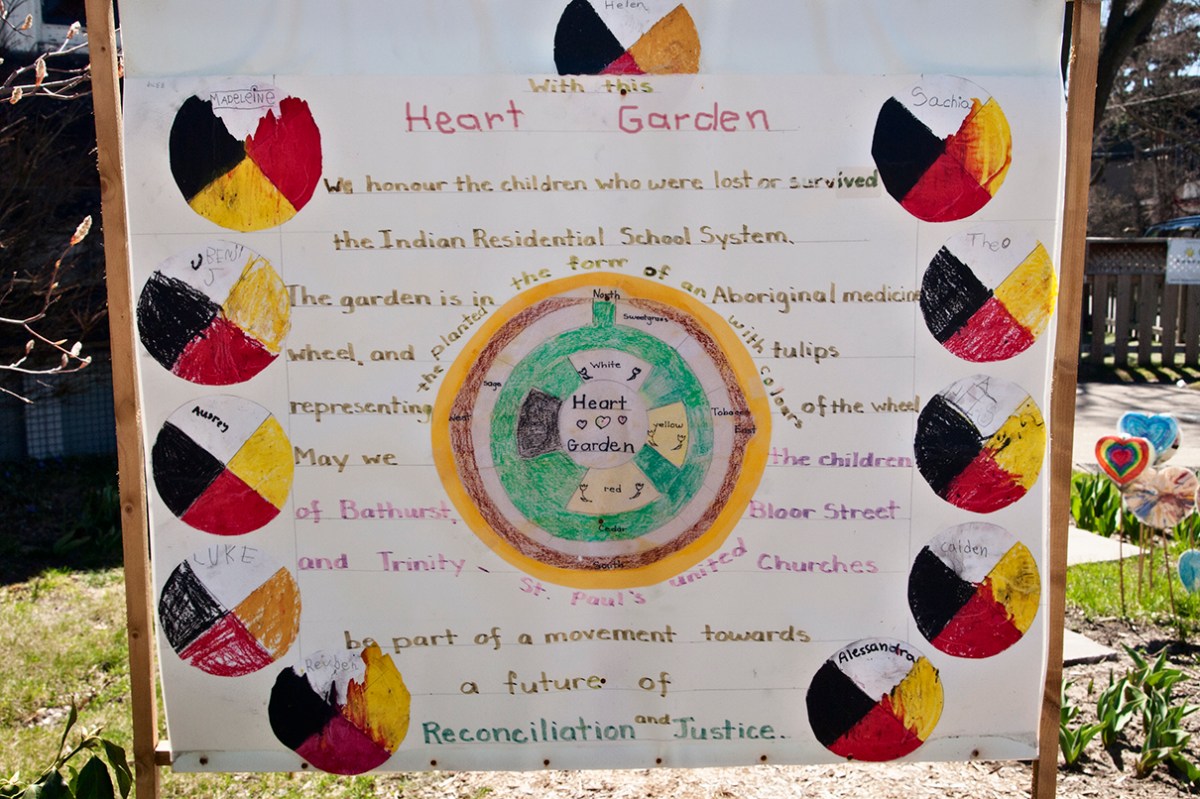 Helen
With this
Heart Garden
MADELEINE
Sachia
We honour the children who were lost or survived
the Indian Residential School System.
BENJI
Theo
The garden is in the form of an Aboriginal medicine
wheel, and the planted with tulips
representing colours of the wheel
Aubrey
May we the children
of Bathurst, Bloor Street
and Trinity - St. Paul's United Churches
LUKE
Calden
be part of a movement towards
a future of
Reconciliation and Justice.
Reuben
Alessandra
North
Sweetgrass
Sage
West
Tobacco
East
Cedar
South
White
yellow
red
Heart
Garden